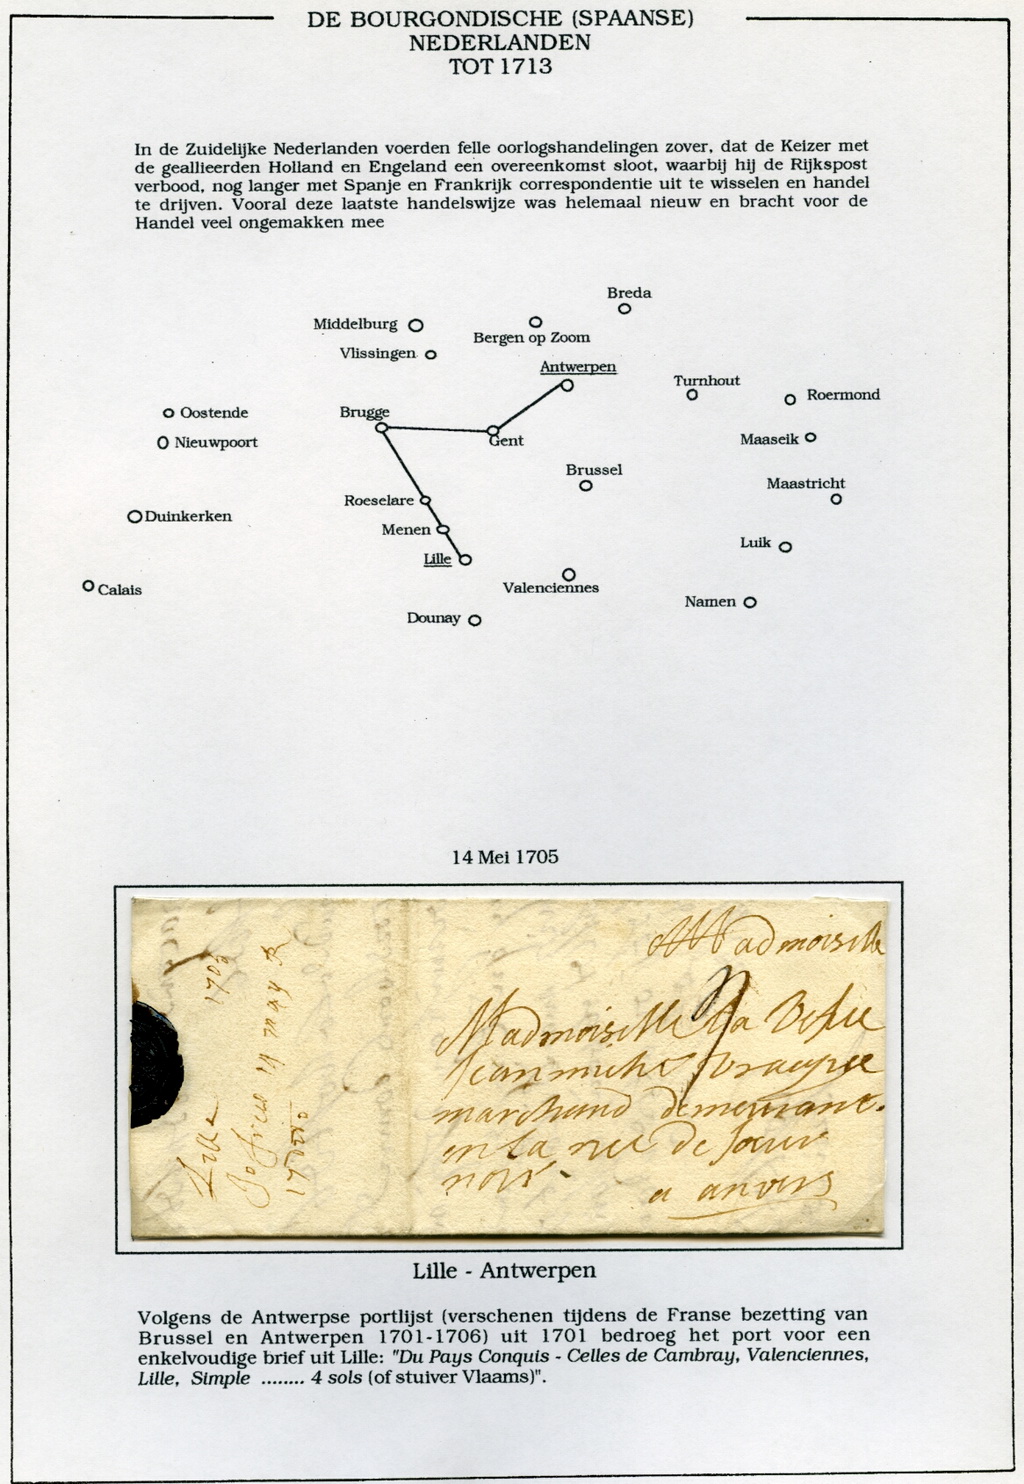 DE BOURGONDISCHE (SPAANSE)
NEDERLANDEN
TOT 1713
In de Zuidelijke Nederlanden voerden felle oorlogshandelingen zover, dat de Keizer met
de geallieerden Holland en Engeland een overeenkomst sloot, waarbij hij de Rijkspost
verbood, nog langer met Spanje en Frankrijk correspondentie uit te wisselen en handel
te drijven. Vooral deze laatste handelswijze was helemaal nieuw en bracht voor de
Handel veel ongemakken mee
Breda
Middelburg
Bergen op Zoom
Vlissingen
Antwerpen
Turnhout
Roermond
Oostende
Brugge
Gent
Nieuwpoort
Maaseik
Brussel
Maastricht
Roeselare
Duinkerken
Menen
Luik
Lille
Calais
Valenciennes
Namen
Dounay
14 Mei 1705
Madmoiselle
Madmoiselle La
marchand demeurant
en La rue de
noir
a anvers
Lille 1705
14 may
Lille - Antwerpen
Volgens de Antwerpse portlijst (verschenen tijdens de Franse bezetting van
Brussel en Antwerpen 1701-1706) uit 1701 bedroeg het port voor een
enkelvoudige brief uit Lille: "Du Pays Conquis - Celles de Cambray, Valenciennes,
Lille, Simple ........ 4 sols (of stuiver Vlaams)".